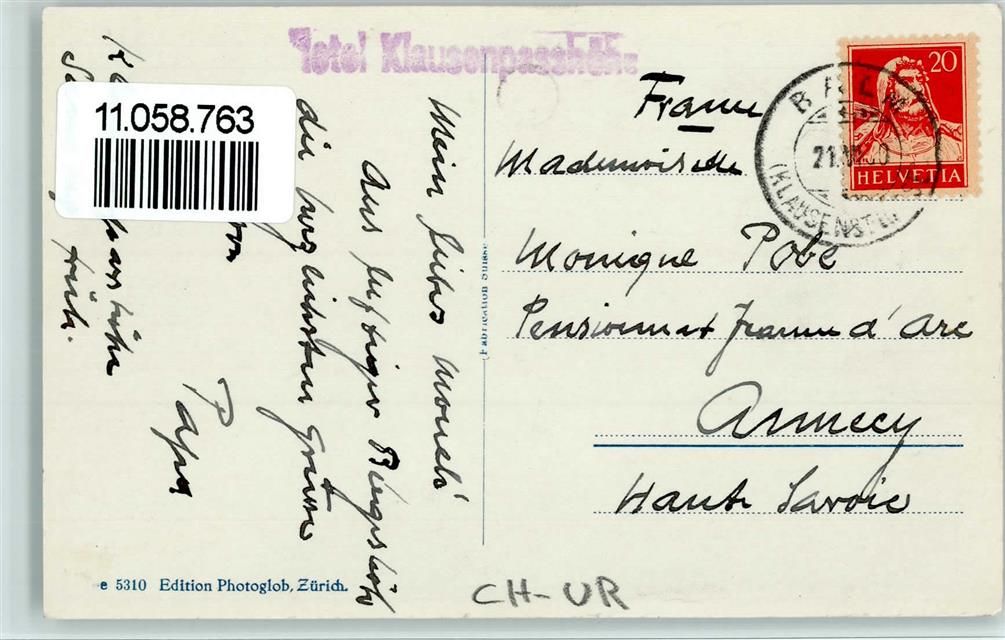 Hotel Klausenpasshöhe
11.058.763
Mein liebes Moneli
Aus luftiger Bergeshöh
die herzlichsten Grüsse
von
Papa
France
Mademoiselle
Monique Pobé
Pensionnat Jeanne d'Arc
Annecy
Haute Savoie
20
HELVETIA
BALM
21.
(KLAUSENSTR.
Fabrication Suisse
e 5310 Edition Photoglob, Zürich.
CH-UR